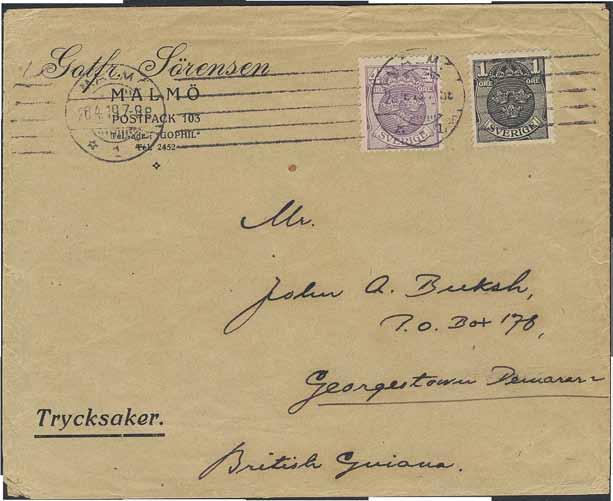 Gotfr. Sörensen
MALMÖ
POSTFACK 103
Telegr.: "GOPHIL"
Tel. 2452
MALMÖ
26.4.19.7-8 F
1
SVERIGE
1 1
ÖRE ÖRE
SVERIGE
Mr.
John A. Buksh,
P.O. Box 178,
Georgestown Demarara
British Guiana.
Trycksaker.